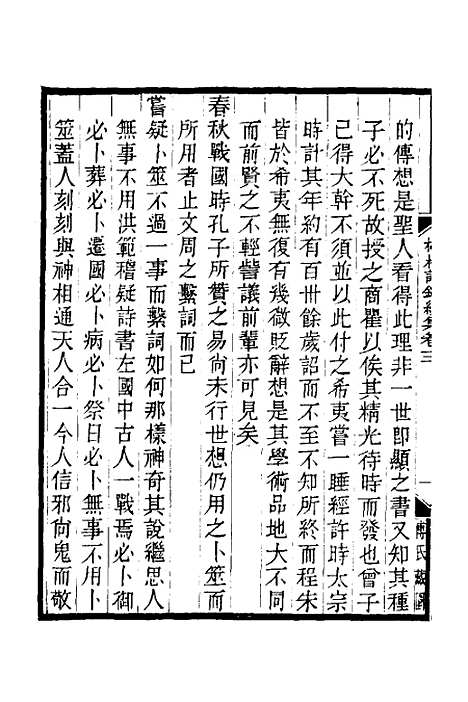 的傳想是聖人看得此理非一世即顯之書又知其種
子必不死故授之商瞿以俟其精光待時而發也曾子
已得大幹不須並以此付之希夷嘗一睡經許時太宗
時計其年約有百卅餘歲詔而不至不知所終而程朱
皆於希夷無復有幾微貶辭想是其學術品地大不同
而前賢之不輕訾議前輩亦可見矣
春秋戰國時孔子所贊之易尚未行世想仍用之卜筮而
所用者止文周之繫詞而已
嘗疑卜筮不過一事而繫詞如何那樣神奇其說繼思人
無事不用洪範稽疑詩書左國中古人一戰焉必卜御
必卜葬必卜遷國必卜病必卜祭日必卜無事不用卜
筮蓋人刻刻與神相通天人合一今人信邪尚鬼而敬
榕村語錄續集卷三
一
傅氏藏園